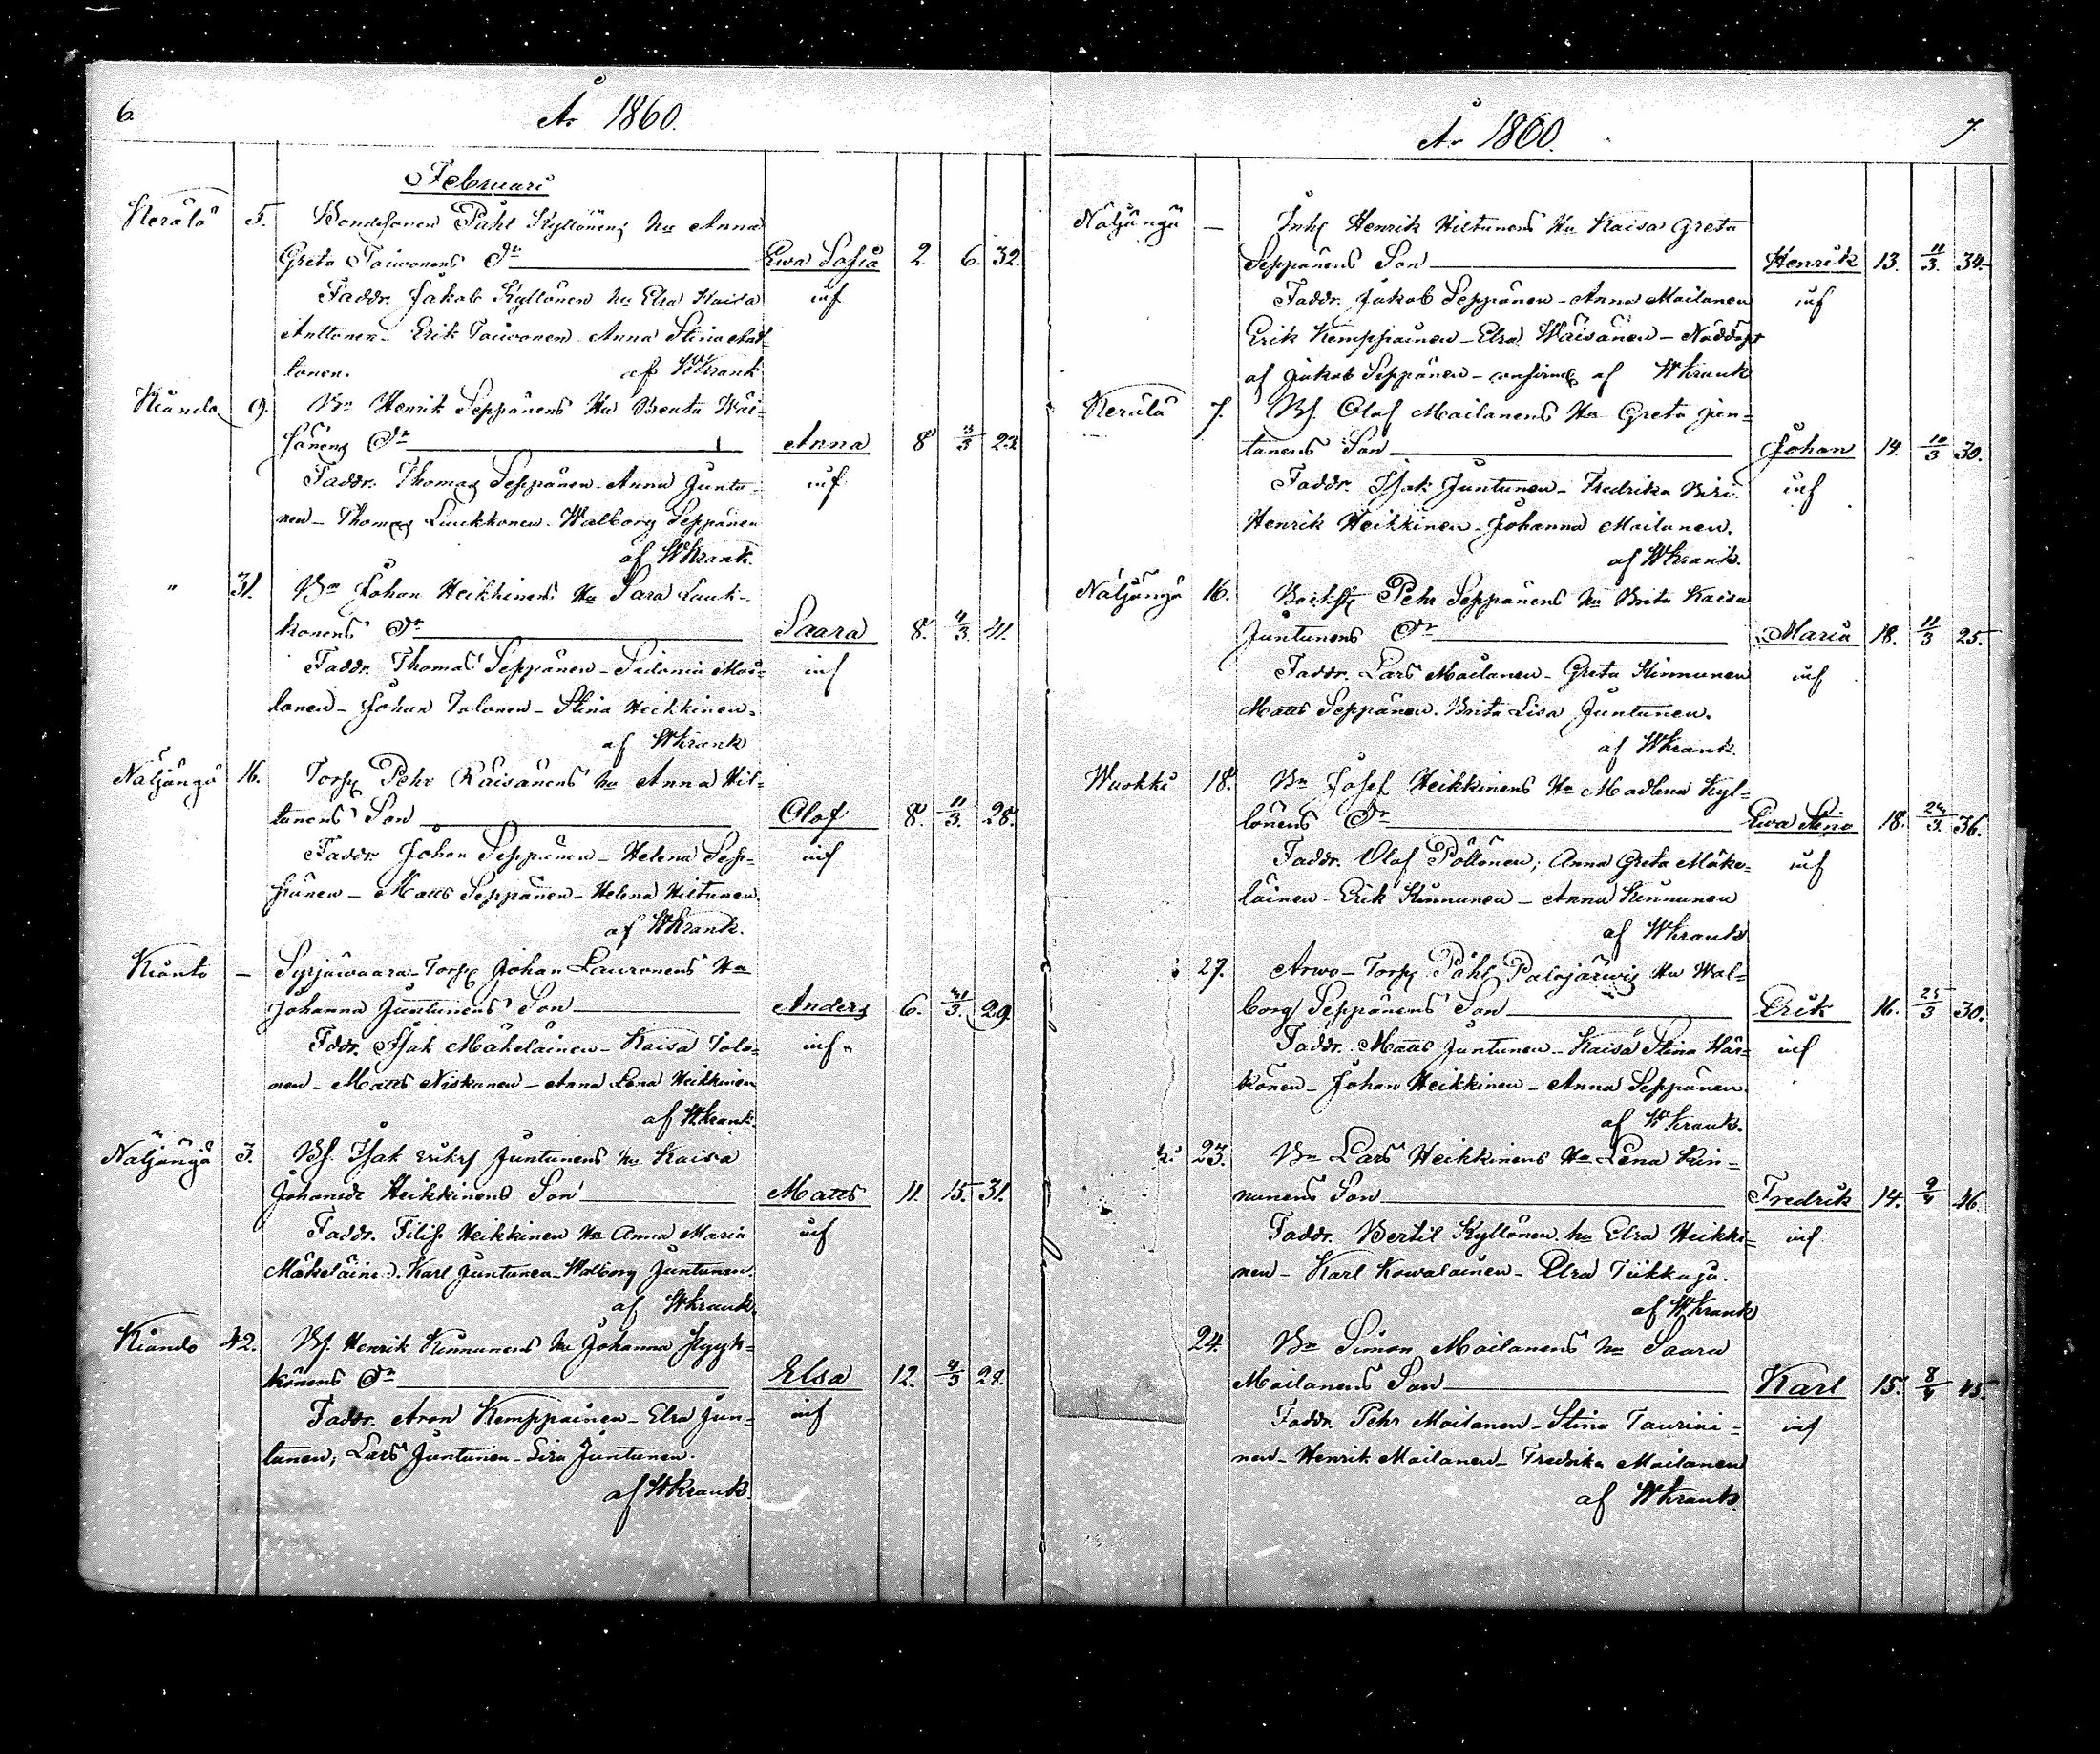 6.
År 1860.
Februari
Kerälä 5. Bondesonen Påhl Kyllönens Hu Anna
Greta Taiwonens Dr Ewa Sofia 2. 6. 32.
Faddr. Jakob Kyllönen Hu Elsa Kaisa inf
Anttonen - Erik Taiwonen - Anna Stina Ant-
tonen. af WKrank
Kiando 9. Bn Henrik Seppänens Hu Breata Wäi-
sänens Dr Anna 8 3 23
Faddr. Thomas Seppänen - Anna Juntu- inf
nen - Thomas Luukkonen. Walborg Seppänen
af WKrank.
" 31. Bn Johan Heikkinens Hu Sara Lauk-
konens Dr Saara 8. 4/3. 41.
Faddr. Thomas Seppänen - Sidonia Moi- inf
lanen - Johan Tolonen - Stina Heikkinen.
af WKrank
Näljängä 16. Torp Pehr Räisänens Hu Anna Hil-
tunens Son Olof 8. 11/3. 28.
Faddr. Johan Seppänen - Helena Sep- inf
pänen - Matts Seppänen - Helena Hiltunen.
af WKrank.
Kianto - Syrjäwaara - Torp Johan Lauronens Hu
Johanna Juntunens Son Anders 6. /3. 29.
Fddr. Isak Mäkeläinen - Kaisa Tolo- inf
nen - Matts Niskanen - Anna Lena Heikkinen
af WKrank.
Näljängä 3. Bs. Isak Eriks Juntunens Hu Kaisa
Johansdr Heikkinens Son Matts 11. 15. 31.
Faddr. Filip Heikkinen Hu Anna Maria inf
Mäkeläinen. Karl Juntunen - Walborg Juntunen.
af WKrank.
Kiando 42. Bs. Henrik Kinnunens Hu Johanna Pyyk-
könens Dr Elsa 12. 4/3 28.
Faddr. Aron Kemppainen - Elsa Jun- inf
tunen; Lars Juntunen - Lisa Juntunen.
af WKrank.
År 1860.
7.
Näljängä - Inh Henrik Hiltunens Hu Kaisa Greta
Seppänens Son Henrik 13. 11/3. 34.
Faddr. Jakob Seppänen - Anna Moilanen inf
Erik Kemppainen - Elsa Wäisänen - Nöddöpt
af Jakob Seppänen - confirm af WKrank
Kerälä 7. Bs. Olof Moilanens Hu Greta Jun-
tunens Son Johan 14. 10/3 30.
Faddr. Isak Juntunen - Fredrika Biri. inf
Henrik Heikkinen - Johanna Moilanen.
af WKrank.
Näljängä 16. Pehr Seppänens Hu Brita Kaisa
Juntunens Dr Maria 18. 11/3 25.
Faddr. Lars Moilanen - Greta Kinnunen inf
Matts Seppänen. Brita Lisa Juntunen.
af WKrank.
Wuokki 18. Bn Josef Heikkinens Hu Madlena Kyl-
lönens Dr Ewa Stina 18. 24/3. 36.
Faddr. Olof Pöllönen; Anna Greta Mäke- inf
läinen - Erik Kinnunen - Anna Kinnunen
af WKrank
27. Arwo - Torp Påhl Palojärwis Hu Wal-
borg Seppänens Son Erik 16. 25/3 30.
Faddr. Matts Juntunen - Kaisa Stina Här- inf
könen - Johan Heikkinen - Anna Seppänen.
af WKrank.
23. Bn Lars Heikkinens Hu Lena Kin-
nunens Son Fredrik 14. 9/4 46.
Faddr. Bertil Kyllönen Hu Elsa Heikki- inf
nen - Karl Kowalainen - Elsa Tiikkaja.
af WKrank
24. Bn Simon Moilanens Hu Saara
Moilanens Son Karl 15. 8/4 45.
Faddr. Pehr Moilanen - Stina Tauriai- inf
nen - Henrik Moilanen - Fredrika Moilanen
af WKrank.